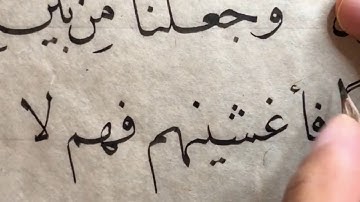 وجعلنا مِن بَيْنِ
فأغشينهم فهم لا